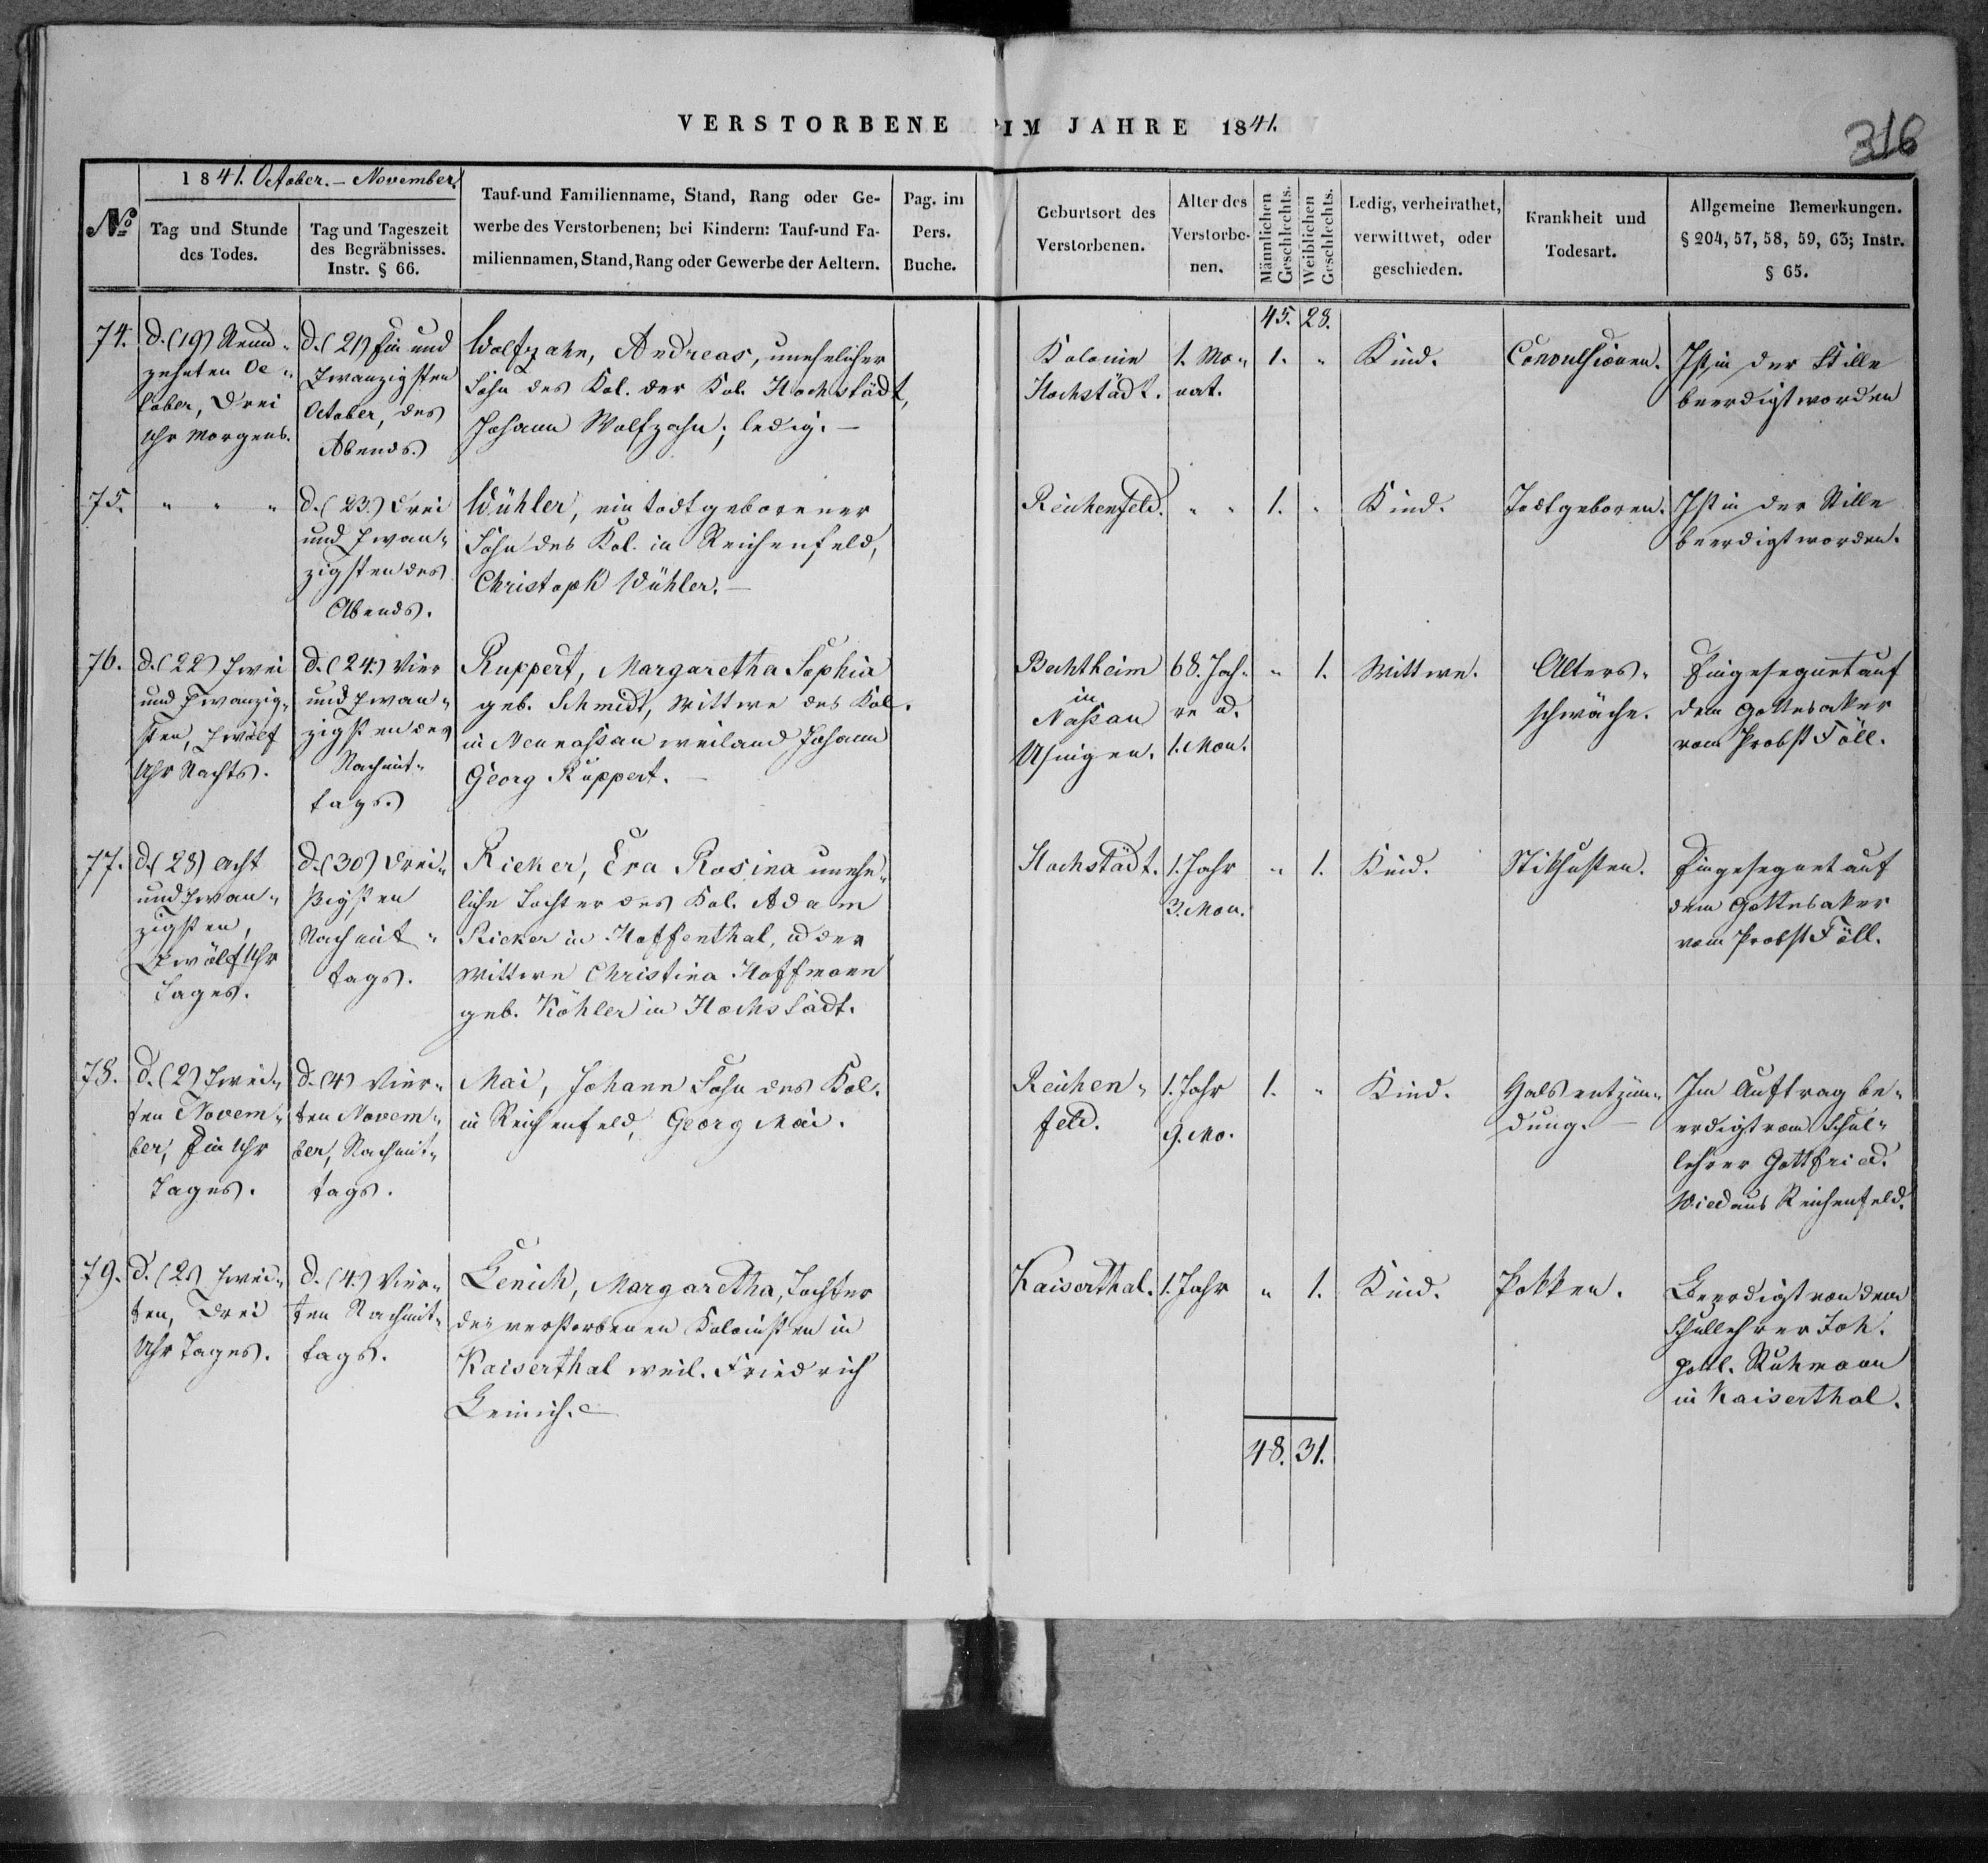 VERSTORBENE IM JAHRE 1841.
316
1841. October. – November.
No
Tag und Stunde
des Todes.
Tag und Tageszeit
des Begräbnisses.
Instr. § 66.
Tauf-und Familienname, Stand, Rang oder Ge-
werbe des Verstorbenen; bei Kindern: Tauf-und Fa-
miliennamen, Stand, Rang oder Gewerbe der Aeltern.
Pag. im
Pers.
Buche.
Geburtsort des
Verstorbenen.
Alter des
Verstorbe-
nen.
Männlichen
Geschlechts.
Weiblichen
Geschlechts.
Ledig, verheirathet,
verwittwet, oder
geschieden.
Krankheit und
Todesart.
Allgemeine Bemerkungen.
§ 204, 57, 58, 59, 63; Instr.
§ 65.
45. 28.
74.
d. (19) Neun-
zehnten Oc-
tober, Drei
Uhr Morgens.
d. (21) Ein und
Zwanzigsten
October, des
Abends.
Wolfzahn, Andreas, unehelicher
Sohn des Kol. der Kol. Hochstädt,
Johann Wolfzahn; ledig. —
Kolonie
Hochstädt.
1. Mo-
nat.
1. "
Kind.
Convulsionen.
Ist in der Stille
beerdigt worden
75.
" " "
d. (23.) Drei
und Zwan-
zigsten des
Abends.
Wühler, ein todtgeborener
Sohn des Kol. in Reichenfeld,
Christoph Wühler. —
Reichenfeld.
" "
1. "
Kind.
Todtgeboren.
Ist in der Stille
beerdigt worden.
76.
d. (22) Zwei
und Zwanzig-
sten, Zwölf
Uhr Nachts.
d. (24.) Vier
und Zwan-
zigsten des
Nachmit-
tags.
Ruppert, Margaretha Sophia
geb. Schmidt, Wittwe des Kol.
in Neunassau weiland Johann
Georg Ruppert. —
Bechtheim
in
Nassau
Usingen.
68. Jah-
re u.
1. Mon.
" 1.
Wittwe.
Alters-
schwäche.
Eingesegnet auf
dem Gottesaker
vom Probst Föll.
77.
d. (28) Acht
und Zwan-
zigsten,
Zwölf Uhr
Tages.
d. (30) Drei-
ßigsten
Nachmit-
tags.
Rieker, Eva Rosina unehe-
liche Tochter des Kol. Adam
Rieker in Hoffenthal, u der
Wittwe Christina Hoffmann
geb. Köhler in Hochstädt.
Hochstädt.
1. Jahr
3. Mon.
" 1.
Kind.
Stikhusten.
Eingesegnet auf
dem Gottesaker
vom Probst Föll.
78.
d. (2) Zwei-
ten Novem-
ber, Ein Uhr
Tages.
d. (4) Vier-
ten Novem-
ber, Nachmit-
tags.
Mai, Johann Sohn des Kol.
in Reichenfeld, Georg Mai.
Reichen-
feld.
1. Jahr
9. Mo.
1. "
Kind.
Halsentzün-
dung. —
Im Auftrag be-
erdigt vom Schul-
lehrer Gottfried
Wied aus Reichenfeld.
79.
d. (2) Zwei-
ten, Drei
Uhr Tages.
d. (4.) Vier-
ten Nachmit-
tags.
Genich, Margaretha, Tochter
des verstorbenen Kolonisten in
Kaiserthal weil. Friedrich
Kaiserthal.
1. Jahr
" 1.
Kind.
Pokken.
Beerdigt von dem
Schullehrer Joh.
Gottl. Ruhmann
in Kaiserthal.
48. 31.